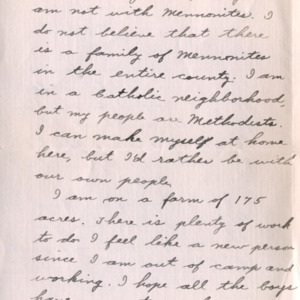 am not with Mennonites. I
do not believe that there
is a family of Mennonites
in the entire county. I am
in a Catholic neighborhood,
but my people are Methodists.
I can make myself at home
here, but I'd rather be with
our own people
I am on a farm of 175
acres. There is plenty of work
to do. I feel like a new person
since I am out of camp and
working. I hope all the boys